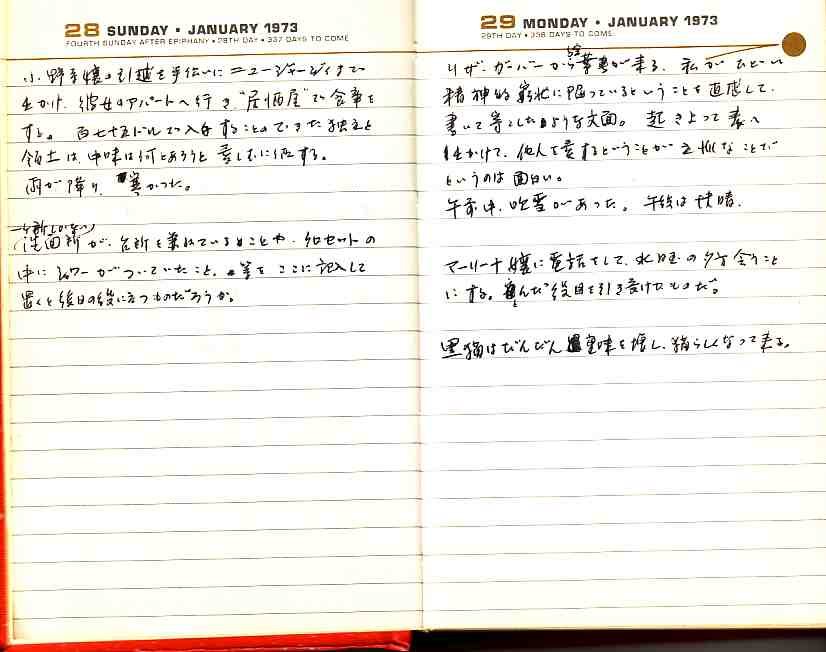 28 SUNDAY • JANUARY 1973
FOURTH SUNDAY AFTER EPIPHANY • 28TH DAY • 337 DAYS TO COME
小野寺嬢の引越を手伝いにニュージャージィまで
出かけ、彼女のアパートへ行き"居酒屋"で食事を
する。百七十五ドルで入手することのできた独立と
領土は、中味は何とあろうと楽しむに価する。
雨が降り、寒かった。
洗面所が、台所を兼ねていることや、クロセットの
中にシャワーがついていたこと、等をここに記入して
置くと後日の役に立つものだろうか。
29 MONDAY • JANUARY 1973
29TH DAY • 336 DAYS TO COME
リザ・ガーバーから絵葉書が来る。私がひどい
精神的窮状に陥っているということを直感して、
書いて寄こしたような文面。起きよって表へ
出かけて、他人を愛するということが
というのは面白い。
午前中、吹雪があった。午後は快晴。
マーリーナ嬢に電話をして、水曜の夕方会うこと
にする。役目を引き受けたものだ。
黒猫はだんだん重味を増し、猫らしくなって来る。